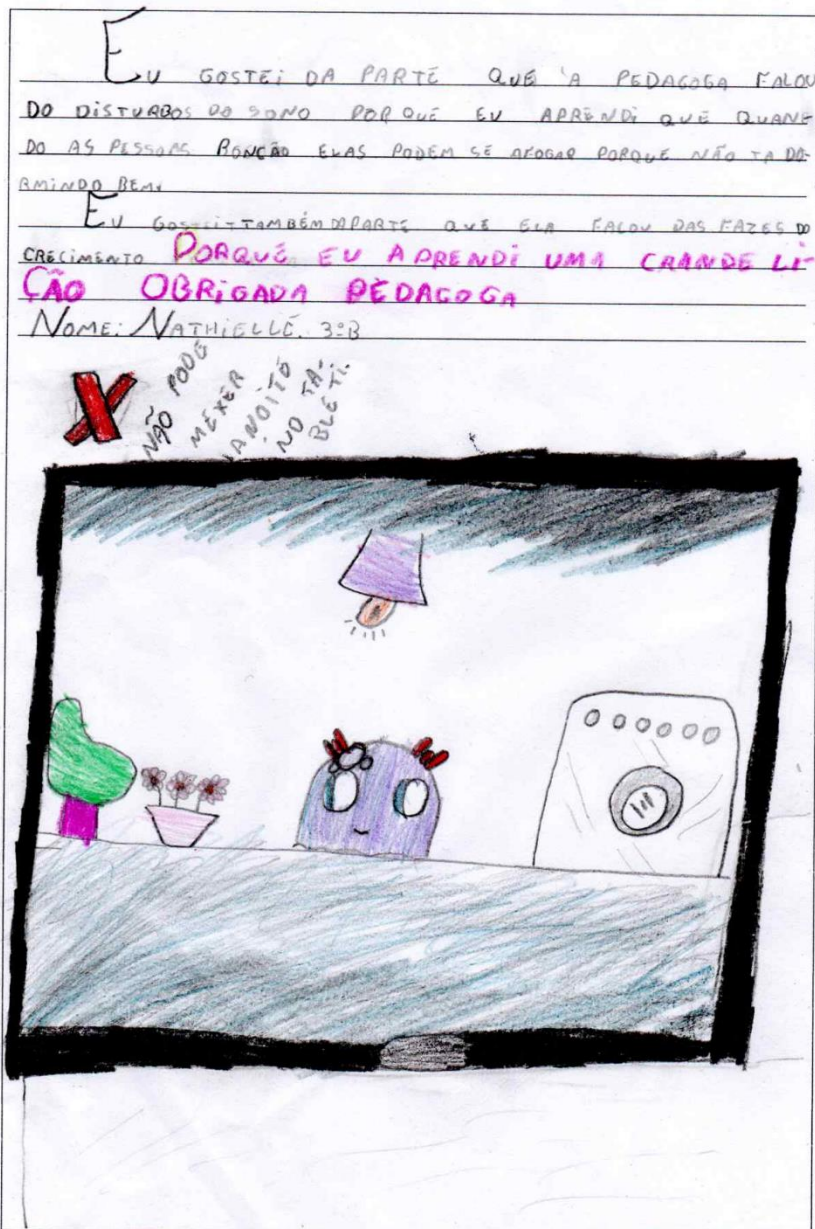 EU GOSTEI DA PARTE QUE A PEDAGOGA FALOU
DO DISTURBOS DO SONO POR QUE EU APRENDI QUE QUANE
DO AS PESSOAS RONCÃO ELAS PODEM SE AFOGAR PORQUE NÃO TA DO-
RMINDO BEM.
EU GOSTEI TAMBÉM DAPARTE QUE ELA FALOU DAS FAZES DO
CRECIMENTO PORQUE EU APRENDI UMA GRANDE LI-
ÇÃO OBRIGADA PEDAGOGA
NOME: NATHIELLE. 3ºB
NÃO PODE
MEXER
ANOITE
NO TA-
BLETI.